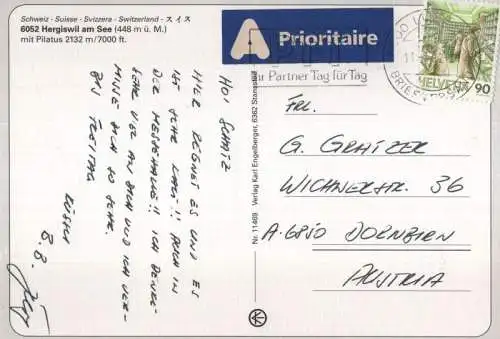 Schweiz - Suisse - Svizzera - Switzerland - スイス
6052 Hergiswil am See (448 m ü. M.)
mit Pilatus 2132 m/7000 ft.
A Prioritaire
Ihr Partner Tag für Tag
HELVETIA 90
HOI SCHATZ
HIER REGNET ES UND ES
IST SEHR KALT!! AUCH IN
DER MESSEHALLE!! ICH DENKE
SEHR VIEL AN DICH UND ICH VER-
MISSE DICH SO SEHR.
BIS FREITAG
KÜSSLI
Nr. 11469 Verlag Karl Engelberger, 6362 Stansstad
FRL.
G. GRATZER
WICHNERSTR. 36
A-6850 DORNBIRN
AUSTRIA